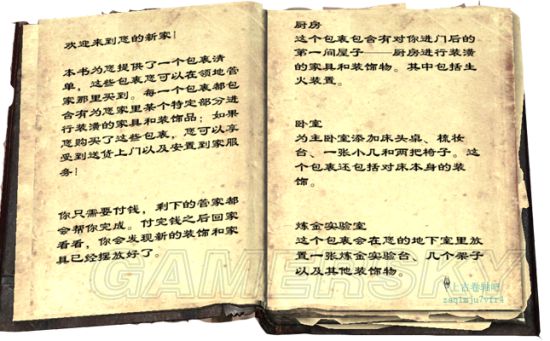 欢迎来到您的新家!
本书为您提供了一个包裹清
单，这些包裹您可以在领地管
家那里买到。每一个包裹都包
含有为您家里某个特定部分进
行装潢的家具和装饰品；如果
您购买了这些包裹，您可以享
受到送货上门以及安置到家服
务!
你只需要付钱，剩下的管家都
会帮你完成。付完钱之后回家
看看，你会发现新的装饰和家
具已经摆放好了。
厨房
这个包裹包含有对你进门后的
第一间屋子——厨房进行装潢
的家具和装饰物。其中包括生
火装置。
卧室
为主卧室添加床头桌、梳妆
台、一张小几和两把椅子。这
个包裹还包括对床本身的装
饰。
炼金实验室
这个包裹会在您的地下室里放
置一张炼金实验台、几个架子
以及其他装饰物。
GAMERSKY
上古卷轴吧
zaq1mju7vfr4